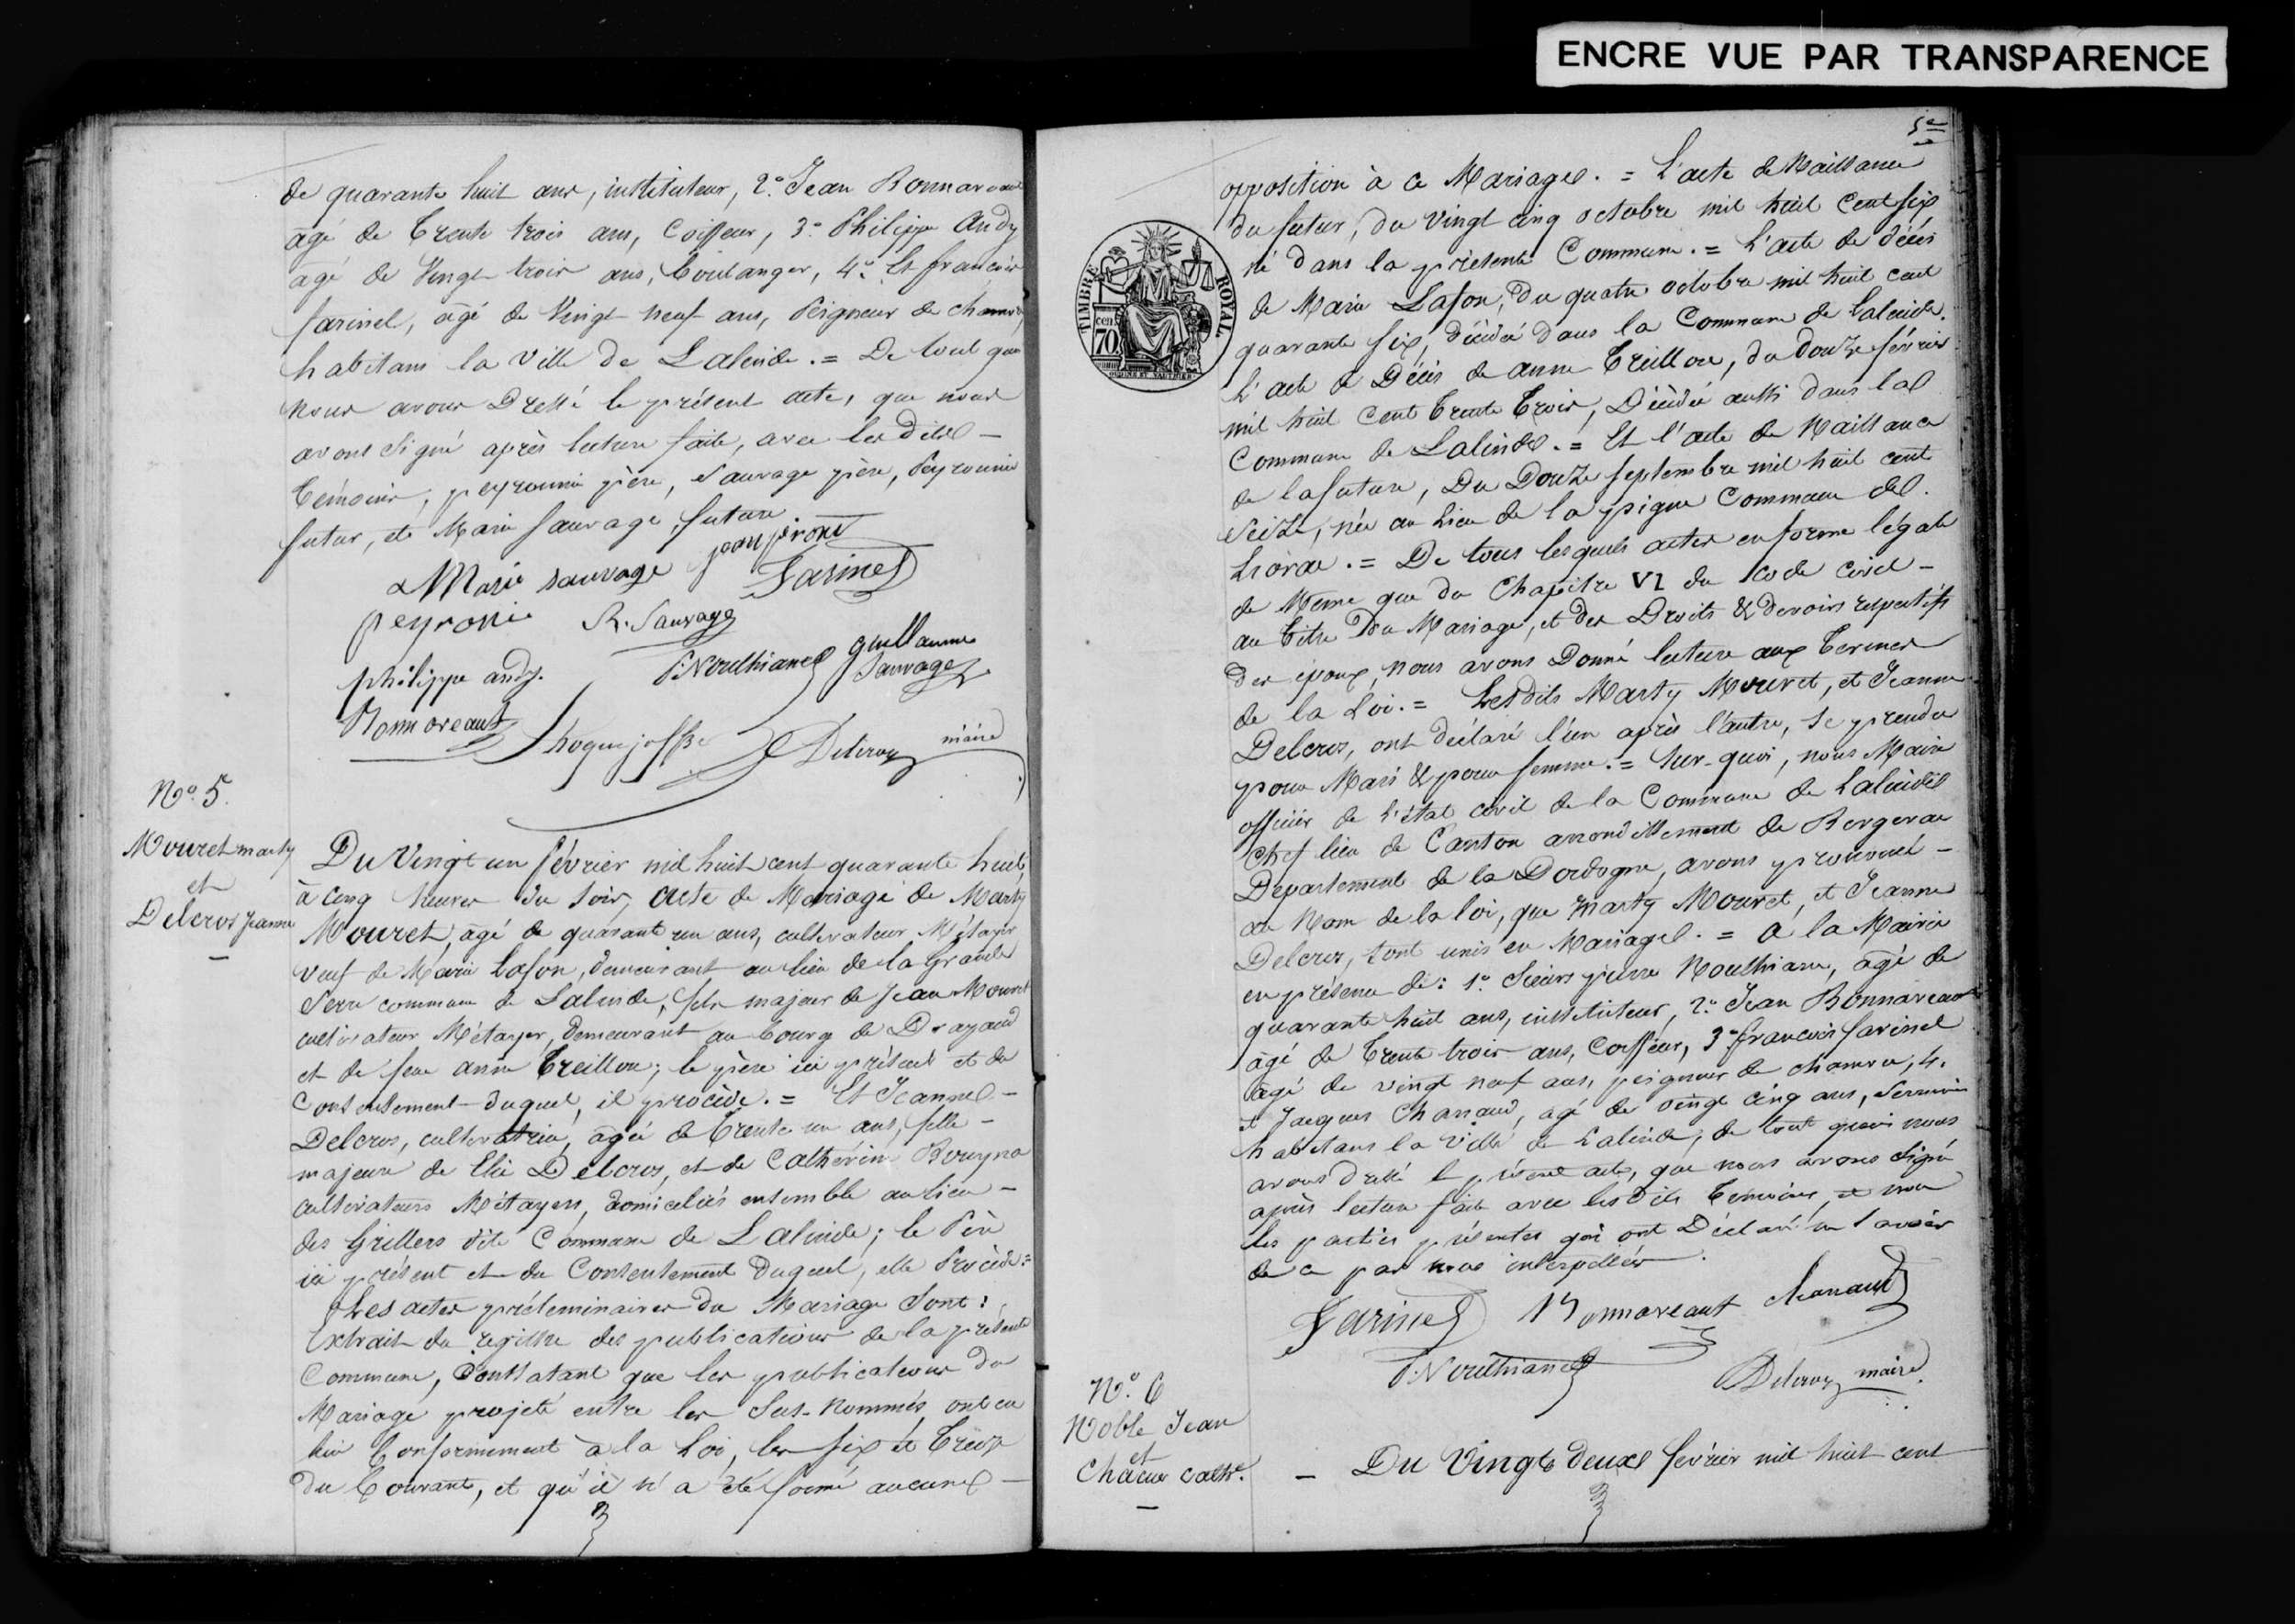 ENCRE VUE PAR TRANSPARENCE
de quarante huit ans, instituteur, 2° Jean Bonnaveau
âgé de trente trois ans, Coiffeur, 3° Philippe Andy
âgé de Vingt trois ans, boulanger, 4° Et françois
farinel, âgé de Vingt neuf ans, Peigneur de chanvre,
habitans la ville de Lalinde. = De tout quoi
nous avons Dressé le présent acte, que nous
avons signé après lecture faite, avec les dits
témoins, peyronnie père, Sauvage père, Peyronnie
futur, et Marie Sauvage, future.
Marie sauvage
Farinel
peyronie R. Sauvage
philippe andy. P. Nouthiane guillaume Sauvage
Bonnoveaut
Delcroux maire
N° 5.
Mouret marty
et
Delcros jeanne
Du Vingt un février mil huit cent quarante huit,
à cinq heures du soir, acte de Mariage de Marty
Mouret, âgé de quarante un ans, cultivateur Métayer
veuf de Marie Lafon, demeurant au lieu de la Grande
Serre commune de Lalinde, fils majeur de Jean Mouret
cultivateur Métayer, demeurant au bourg de Drayaud
et de feue anne Treillou; le père ici présent et du
Consentement duquel, il procède. = Et Jeanne
Delcros, cultivatrice, âgée de trente un ans, fille
majeure de Elie Delcros, et de Cathérine Bouyna
cultivateurs Métayers, domiciliés ensemble au lieu
des Grillers dite Commune de Lalinde; le Père
ici présent et du Consentement duquel, elle Procède =
Les actes préleminaires du Mariage Sont:
Extrait du registre des publications de la présente
Commune, Constatant que les publications du
Mariage projeté entre les Sus-Nommés, ont eu
lieu Conformément à la Loi, les six et treize
du Courant, et qu'il n'a été formé aucune
5e
TIMBRE ROYAL.
cen. 70
opposition à ce Mariage. = L'acte de Naissance
du futur, du vingt cinq octobre mil huit cent six
né dans la présente Commune. = L'acte de décès
de Marie Lafon, du quatre octobre mil huit cent
quarante six, décédée dans la Commune de Lalinde.
L'acte de Décès de anne Treillou, du douze février
mil huit cent trente trois, Décédée aussi dans la
Commune de Lalinde. = Et l'acte de Naissance
de la future, Du Douze septembre mil huit cent
Seize, née au Lieu de la pigne Commune de
Liorac. = De tous lesquels actes en forme légale
de Même que du Chapitre VI du Code civil
au titre Du Mariage, et des Droits & devoirs respectifs
des époux, nous avons Donné lecture aux termes
de la Loi. = Lesdits Marty Mouret, et Jeanne
Delcros, ont déclaré l'un après l'autre, se prendre
pour Mari & pour femme. = Sur-quoi, nous Maire
officier de l'état civil de la Commune de Lalinde
Chef lieu de Canton arrondissement de Bergerac
Département de la Dordogne, avons prononcé
au Nom de la loi, que Marty Mouret, et Jeanne
Delcros, sont unis en Mariage. = à la Mairie
en présence de: 1° Sieurs pierre Nouthiane, âgé de
quarante huit ans, instituteur, 2° Jean Bonnaveau
âgé de trente trois ans, Coiffeur, 3° françois farinel
âgé de vingt neuf ans, peigneur de chanvre, 4.
et Jacques Chanaud, âgé de vingt cinq ans,
habitans la ville de Lalinde; de tout quoi nous
avons dressé le présent acte, que nous avons signé
après lecture faite avec les dits témoins, et non
les parties présentes qui ont Déclaré ne savoir
de ce par nous interpellées.
Farinel Bonnaveaut chanaud
P. Nouthiane Delcroux maire
N° 6
Noble Jean
et
Chacur cathe.
Du Vingt deux février mil huit cent